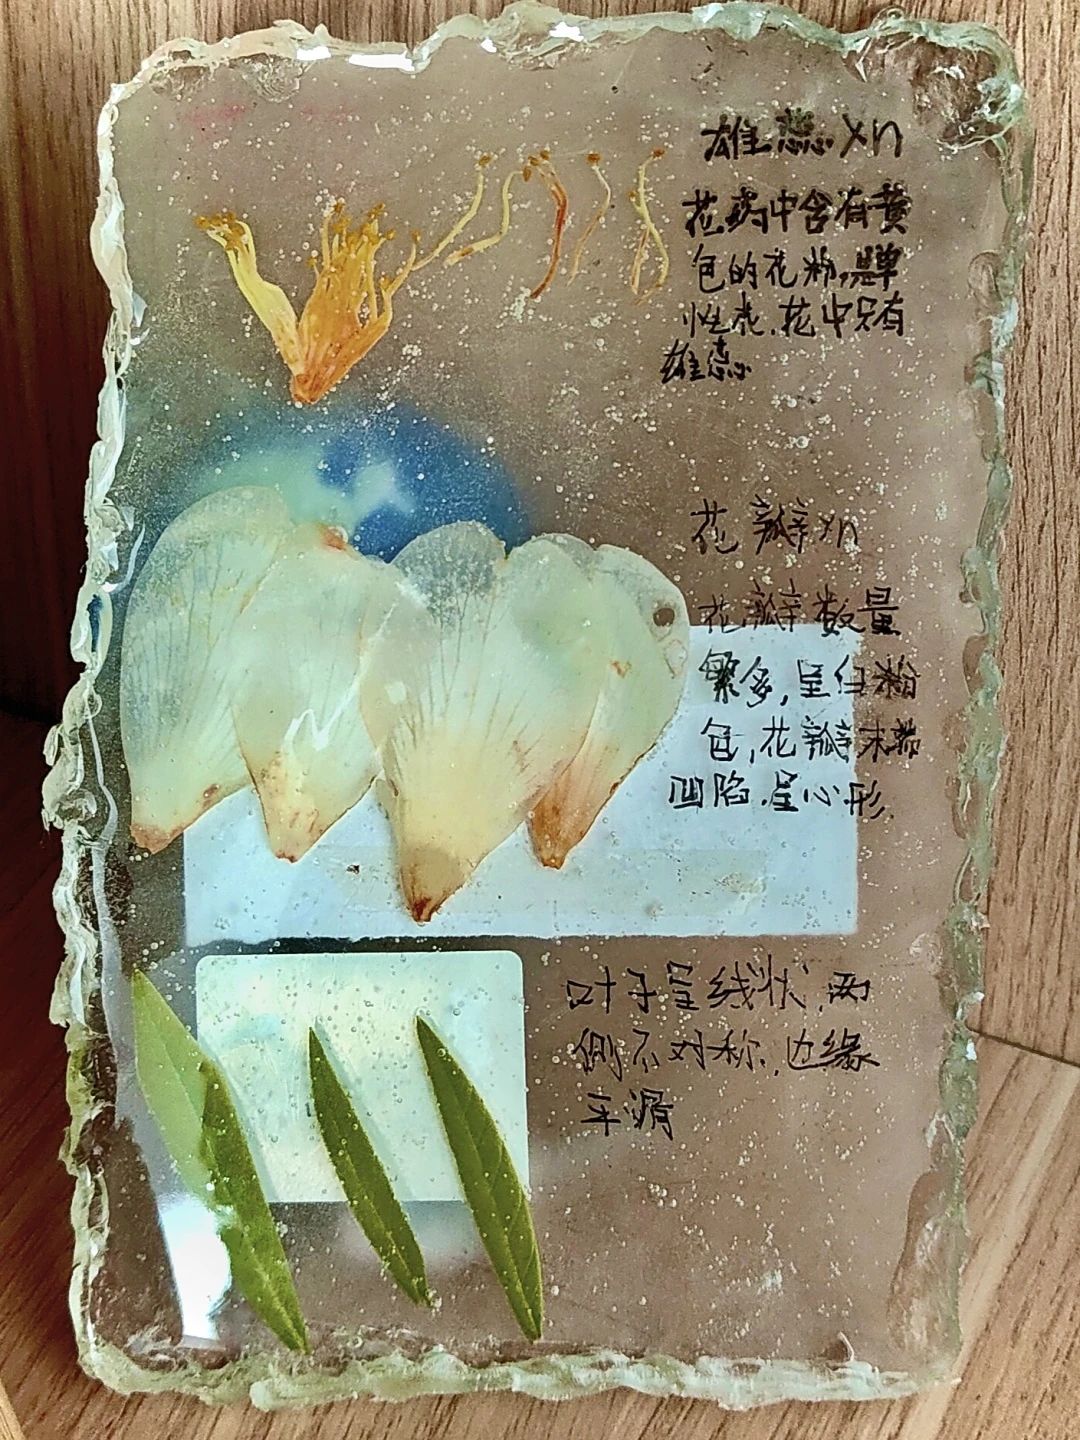 雄蕊xn
花药中含有黄
包的花粉,是单
性花.花中只有
雄蕊
花瓣xn
花瓣数量
繁多,呈白
包,花瓣末端
凹陷.呈心形.
叶子呈线状,两
侧不对称.边缘
平滑